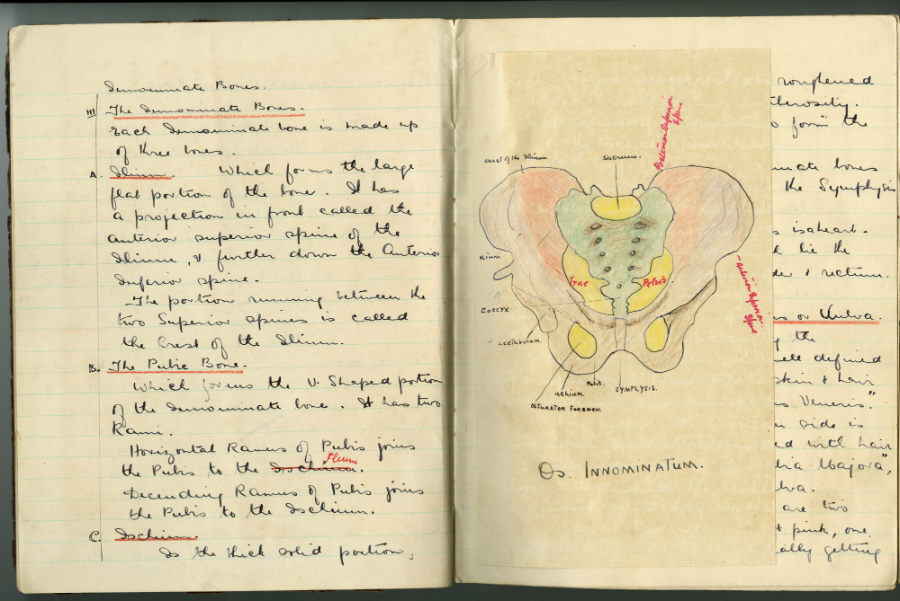 Innominate Bones.
III The Innominate Bones.
Each Innominate bone is made up
of three bones.
A. Ilium. Which forms the large
flat portion of the bone. It has
a projection in front called the
anterior superior spine of the
Ilium, & further down the Anterior
Inferior spine.
The portion running between the
two Superior spines is called
the Crest of the Ilium.
B. The Pubic Bone.
Which forms the V. Shaped portion
of the Innominate bone. It has two
Rami.
Horizontal Ramus of Pubis joins
Ilium
the Pubis to the Ischium.
Decending Ramus of Pubis joins
the Pubis to the Ischium.
C. Ischium
Is the thick solid portion,
Posterior Superior
Spine
Crest of the Ilium
Sacrum.
Ilium
Anterior Superior
Spine
True Pelvis
Coccyx
Acetabulum.
Pubis.
Ischium.
Symphysis.
Obturator Foramen.
Os. Innominatum.
roughened
form the
bones
the Symphysis
is a heart.
lie the
& rectum.
or Vulva.
the
well defined
skin & hair
Veneris."
side is
with hair
Majora",
are two
pink, one
getting